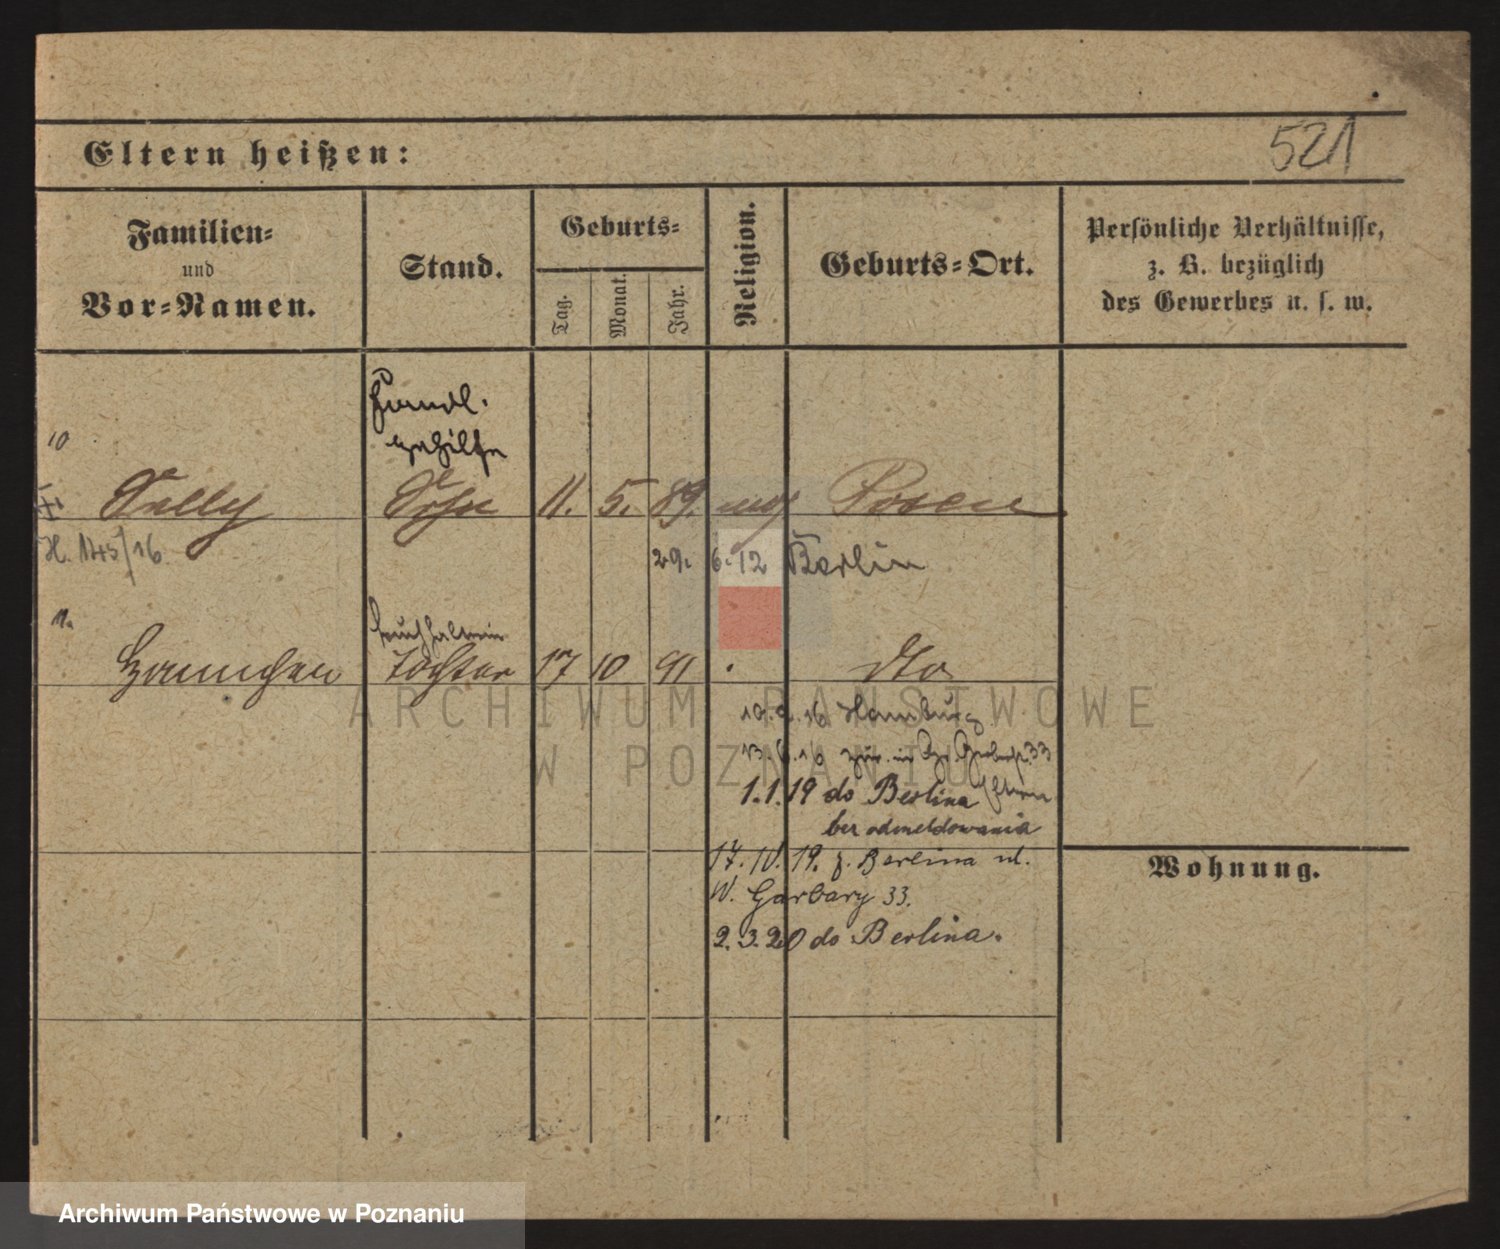 521
Eltern heißen:
Familien-
und
Vor-Namen.
Stand.
Geburts-
Tag.
Monat.
Jahr.
Religion.
Geburts-Ort.
Persönliche Verhältnisse,
z. B. bezüglich
des Gewerbes u. s. w.
Handl.
gehilfe
10
Sally Sohn 11. 5. 89. mos Posen
H. 145/16. 29. 6. 12 Berlin
11.
buchhalterin
Hannchen Tochter 17 10 91 dto
16 Hamburg
zur. 33
1.1.19 do Berlina
bez odmeldowania
17. IV. 19. z. Berlina ul.
W. Garbary 33.
2.3.20 do Berlina.
Wohnung.
ARCHIWUM PAŃSTWOWE
W POZNANIU
Archiwum Państwowe w Poznaniu